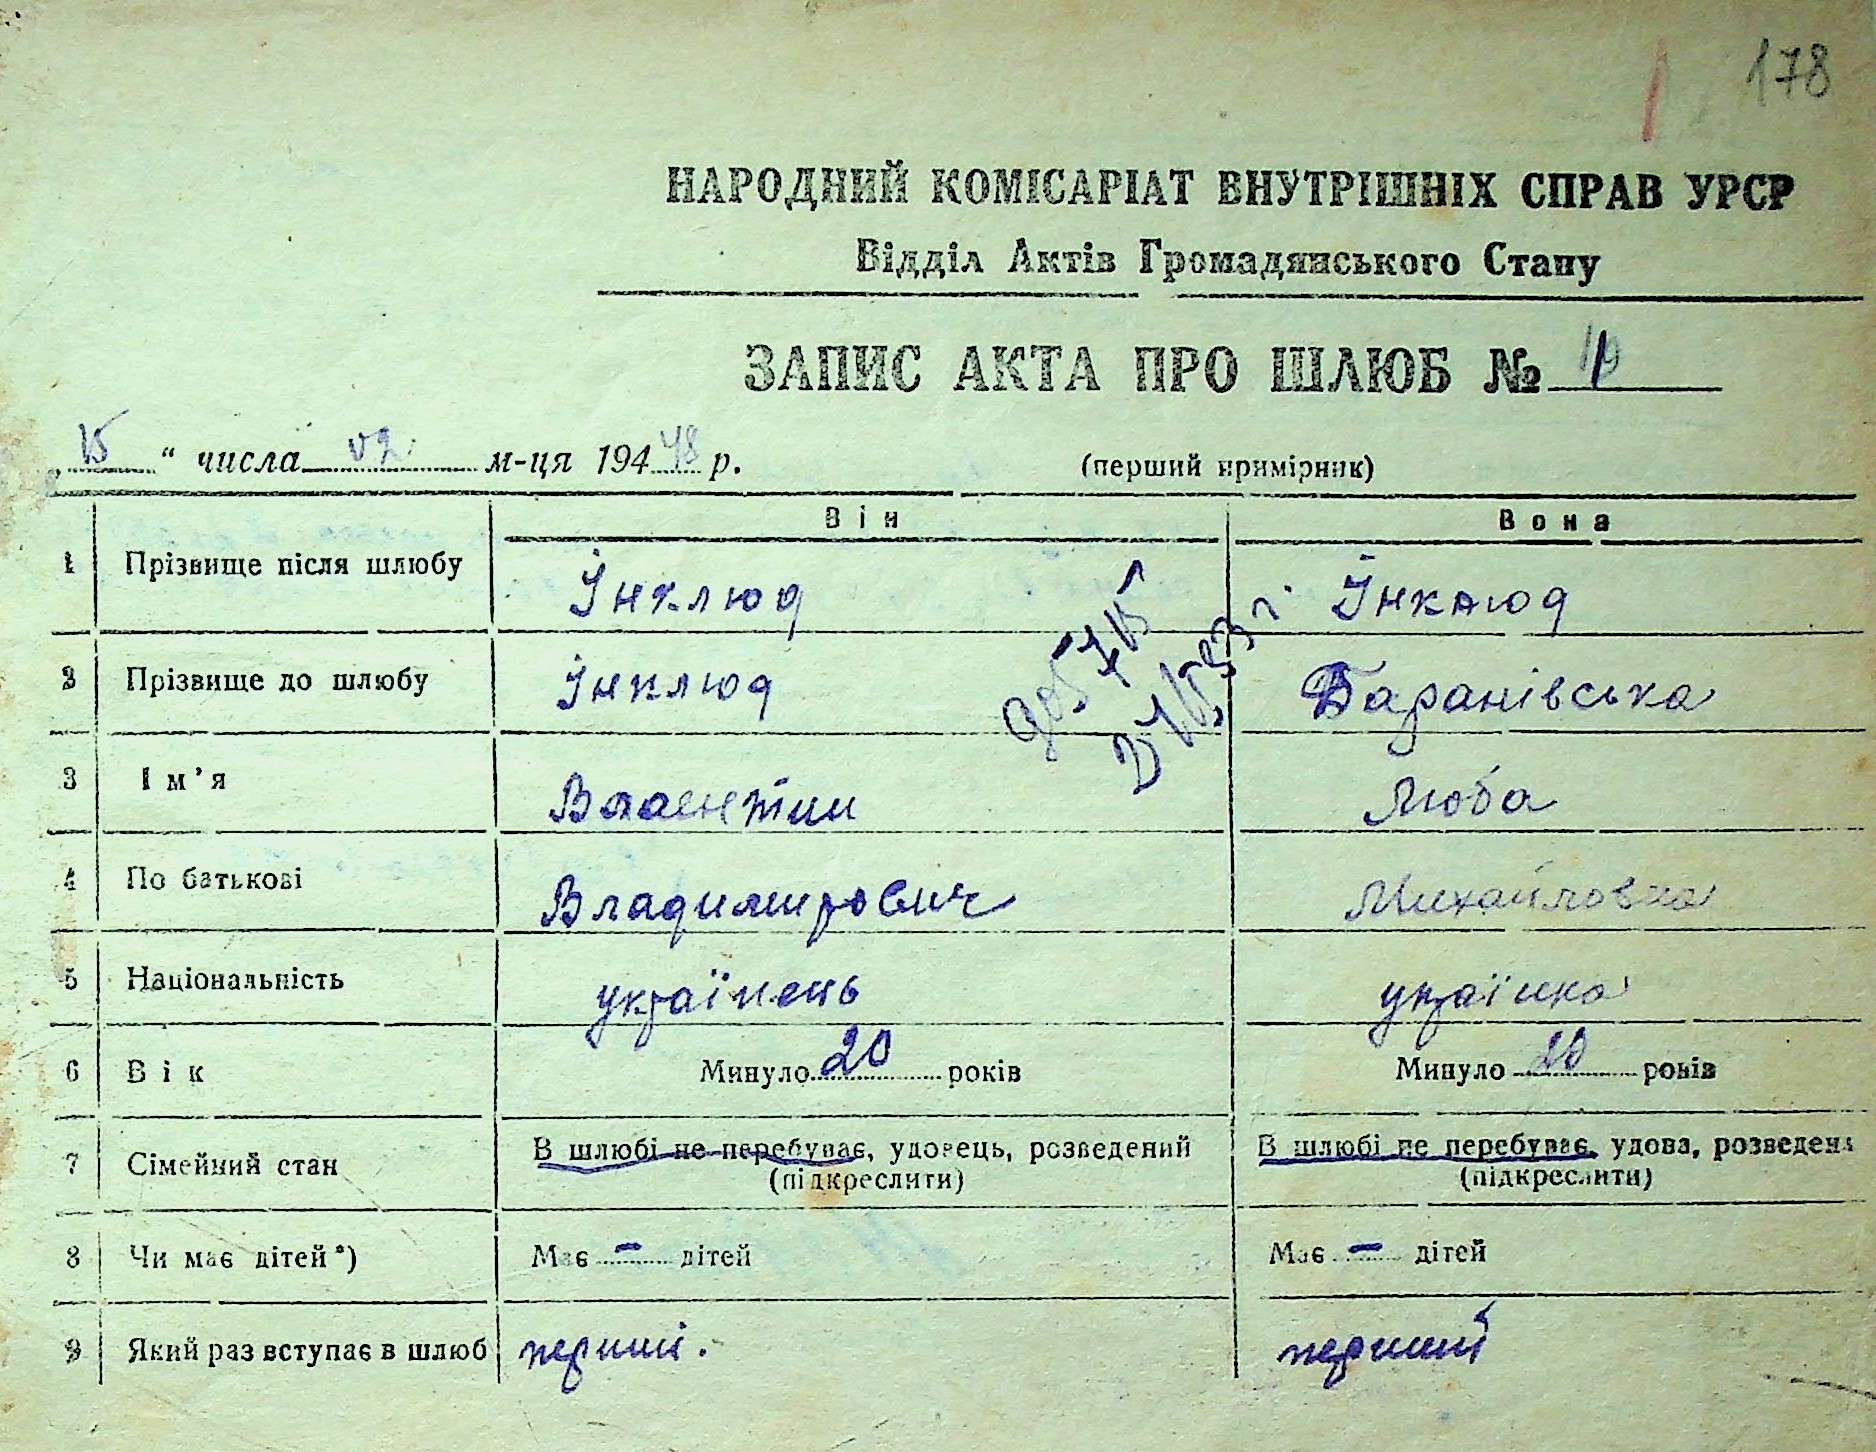 178
НАРОДНИЙ КОМІСАРІАТ ВНУТРІШНІХ СПРАВ УРСР
Відділ Актів Громадянського Стану
ЗАПИС АКТА ПРО ШЛЮБ №
„15“ числа 02 м-ця 194 48 р. (перший примірник)
Він Вона
1 Прізвище після шлюбу Інклюд Інклюд
2 Прізвище до шлюбу Інклюд Баранівська
3 Ім’я Валентин Люба
4 По батькові Владимирович Михайловна
5 Національність українець українка
6 Вік Минуло 20 років Минуло 20 років
7 Сімейний стан В шлюбі не перебуває, удовець, розведений В шлюбі не перебуває, удова, розведена
(підкреслити) (підкреслити)
8 Чи має дітей*) Має - дітей Має - дітей
9 Який раз вступає в шлюб перший. перший